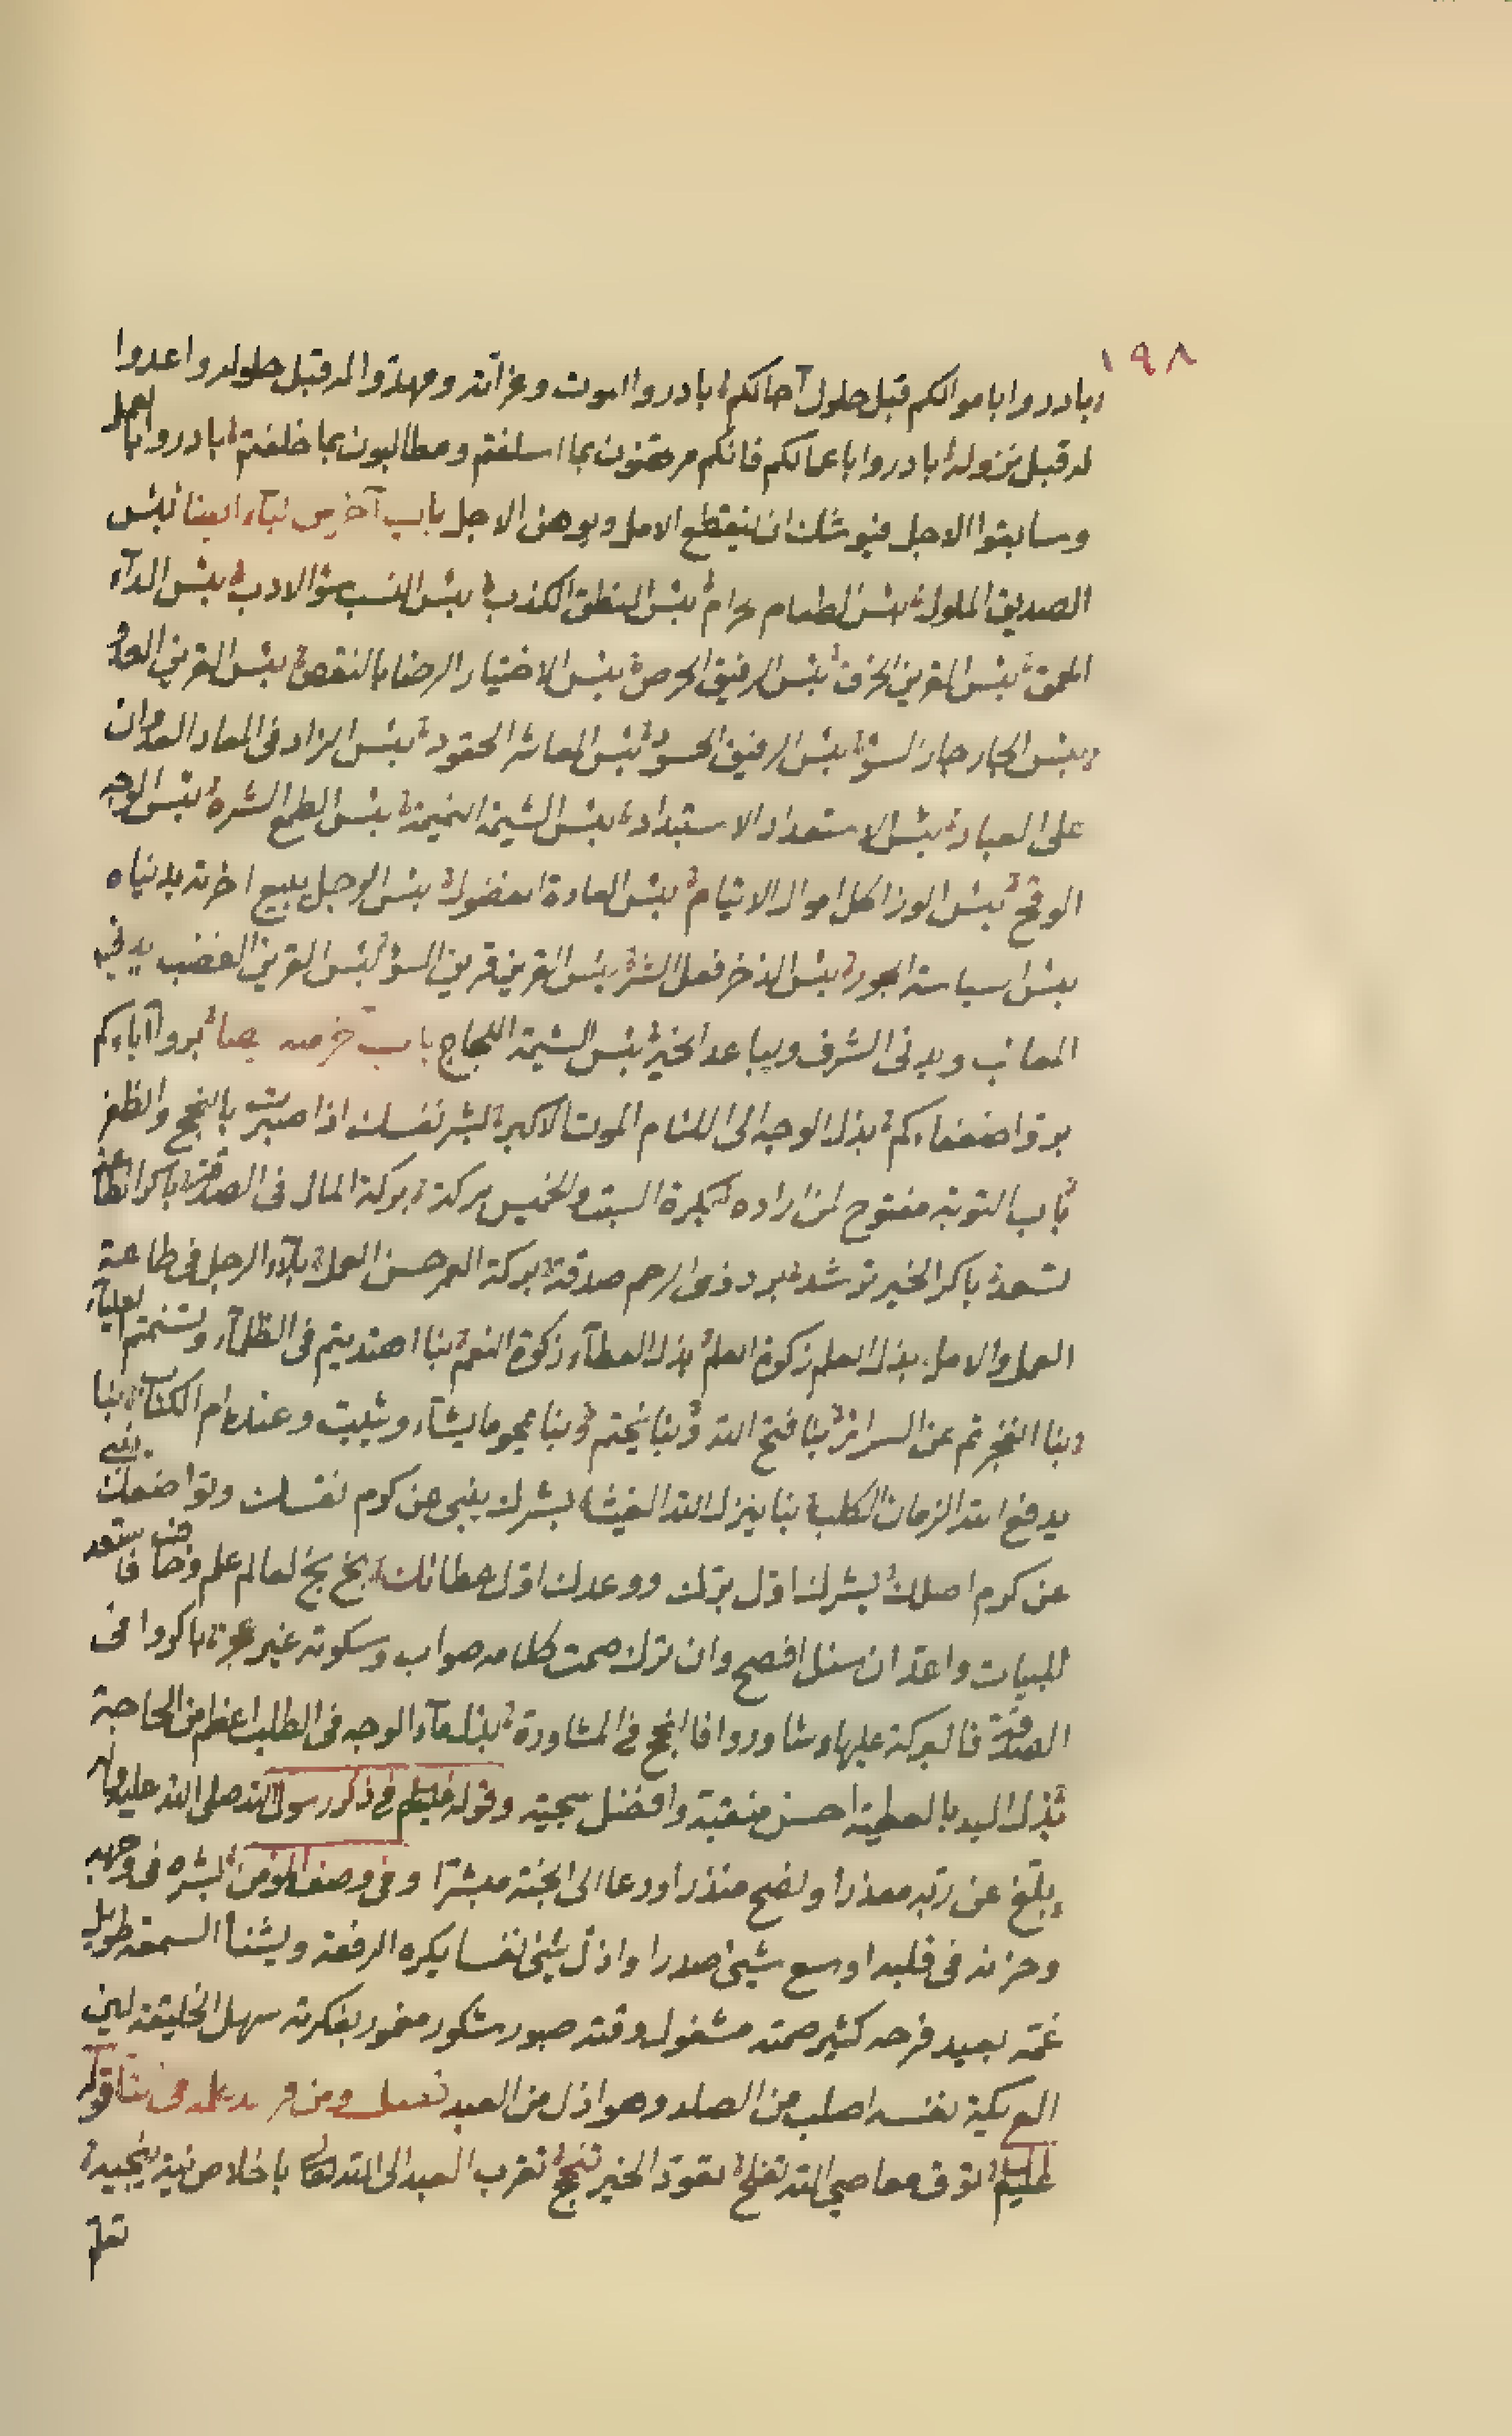 ١٩٨
بادروا باموالكم قبل حلول آجالكم بادروا الموت وغمراته ومهدوا له قبل حلوله واعدوا
له قبل نزوله بادروا باعمالكم فانكم مرتهنون بما اسلفتم ومطالبون بما خلفتم بادروا بالعمل
وسابقوا الاجل فيوشك ان ينقطع الامل ويرهق الاجل باب آخر من الباء ايضا بئس
الصديق الملول بئس الطعام حرام بئس المنطق الكذب بئس النسب سؤ الادب بئس الدآء
الحمق بئس القرين الخرق بئس الرفيق الحرص بئس الاختيار الرضا بالنقص بئس القرين العدو
بئس الجار جار السؤ بئس الرفيق الحسود بئس المعاشر الحقود بئس الزاد فى المعاد العدوان
على العباد بئس الاستعداد الاستبداد بئس الشيمة النميمة بئس الطمع الشره بئس الوجه
الوقح بئس الوزر اكل اموال الايتام بئس العادة الفضول بئس الرجل يبيع اخرته بدنياه
بئس السياسة الجور بئس الذخر فعل الشر بئس القرين قرين السؤ بئس القرين الغضب يبدى
المعائب ويدنى الشر ويباعد الخير بئس الشيمة اللجاج باب آخر منه ايضا بروا آباءكم
بروا ضعفاءكم بذل الوجه الى اللئام الموت الاكبر بشر نفسك اذا صبرت بالنجح والظفر
باب التوبة مفتوح لمن اراده بكرة السبت والخميس بركة بركة المال فى الصدقة باكر الطاعة
تسعد باكر الخير ترشد بر ذوى الرحم صدقة بركة العمر حسن العمل بلاء الرجل فى طاعة
العمل والامل بذل العلم زكوة العلم بذل العطآء زكوة النعم بنا اهتديتم فى الظلمآء وتسنمتم العليآء
وبنا انفجرتم عن السرار بنا فتح الله وبنا يختم وبنا يمحو ما يشآء ويثبت وعنده ام الكتاب بنا
يدفع الله الزمان الكلب بنا ينزل الله الغيث بشرك ينبى عن كرم نفسك وتواضعك ينبى
عن كرم اصلك بشرك اول برك ووعدك اول عطائك بخ بخ لعالم علم وخاف فاستعد
للبيات واعد ان سئل افصح وان ترك صمت كلامه صواب وسكوته غير عى باكروا فى
الصدقة فالبركة عليها وشاوروا فالنجح فى المشاورة بذل مآء الوجه فى الطلب اعظم من الحاجة
بذل اليد بالعطية احسن منقبة وافضل سجية وقوله عليه السلم فى ذكر رسول الله صلى الله عليه وآله
بلغ عن ربه معذرا ونصح منذرا ودعا الى الجنة مبشرا وفى وصف المؤمن بشره فى وجهه
وحزنه فى قلبه اوسع شيئ صدرا واذل شيئ نفسا يكره الرفعة ويشنأ السمعة طويل
غمه بعيد فرحه كثير صمته مشغول وقته صبور شكور مغمور بفكرته سهل الخليقة لين
العريكة نفسه اصلب من الصلد وهو اذل من العبد
عليه السلم توق معاصى الله تفلح تعود الخير تنجح تقرب العبد الى الله تعالى باخلاص نيته